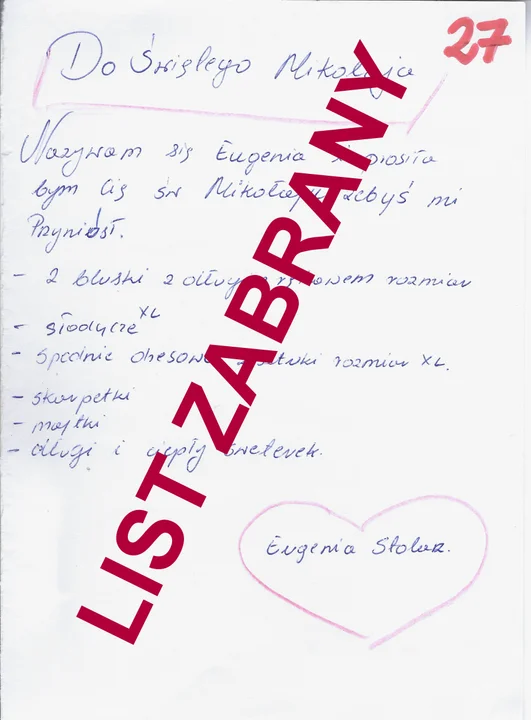 27
Do Świętego Mikołaja
Nazywam się Eugenia i prosiła
bym Cię św Mikołaju żebyś mi
Przyniósł.
- 2 bluski z długim rękawem rozmiar
XL
- słodycze
- spodnie dresowe 2 sztuki rozmiar XL.
- skarpetki
- majtki
- długi i ciepły sweterek.
Eugenia Stolarz.
LIST ZABRANY